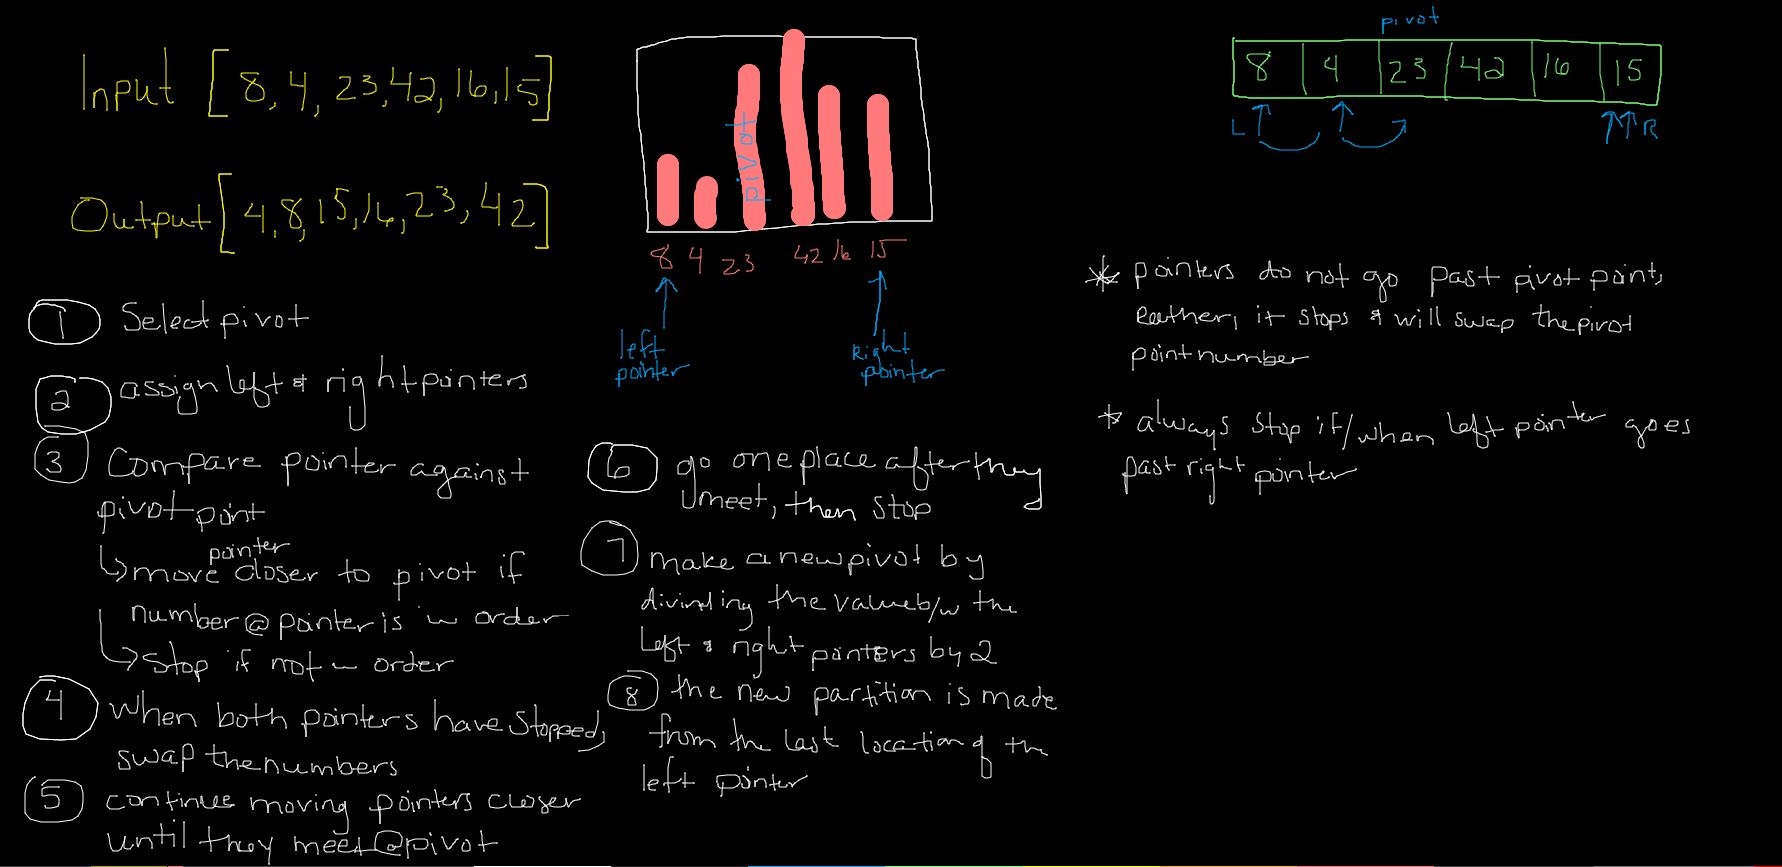 Input [8, 4, 23, 42, 16, 15]
Output [4, 8, 15, 16, 23, 42]
① Select pivot
② assign left & right pointers
③ Compare pointer against
pivot point
pointer
↳ move closer to pivot if
number @ pointer is in order
↳ stop if not in order
④ When both pointers have stopped,
swap the numbers
⑤ continue moving pointers closer
until they meet @ pivot
pivot
8 4 23 42 16 15
left
pointer
Right
pointer
⑥ go one place after they
meet, then stop
⑦ make a new pivot by
dividing the value b/w the
left & right pointers by 2
⑧ the new partition is made
from the last location of the
left pointer
pivot
8 4 23 42 16 15
L R
* pointers do not go past pivot point,
Rather, it stops & will swap the pivot
point number
* always stop if/when left pointer goes
past right pointer